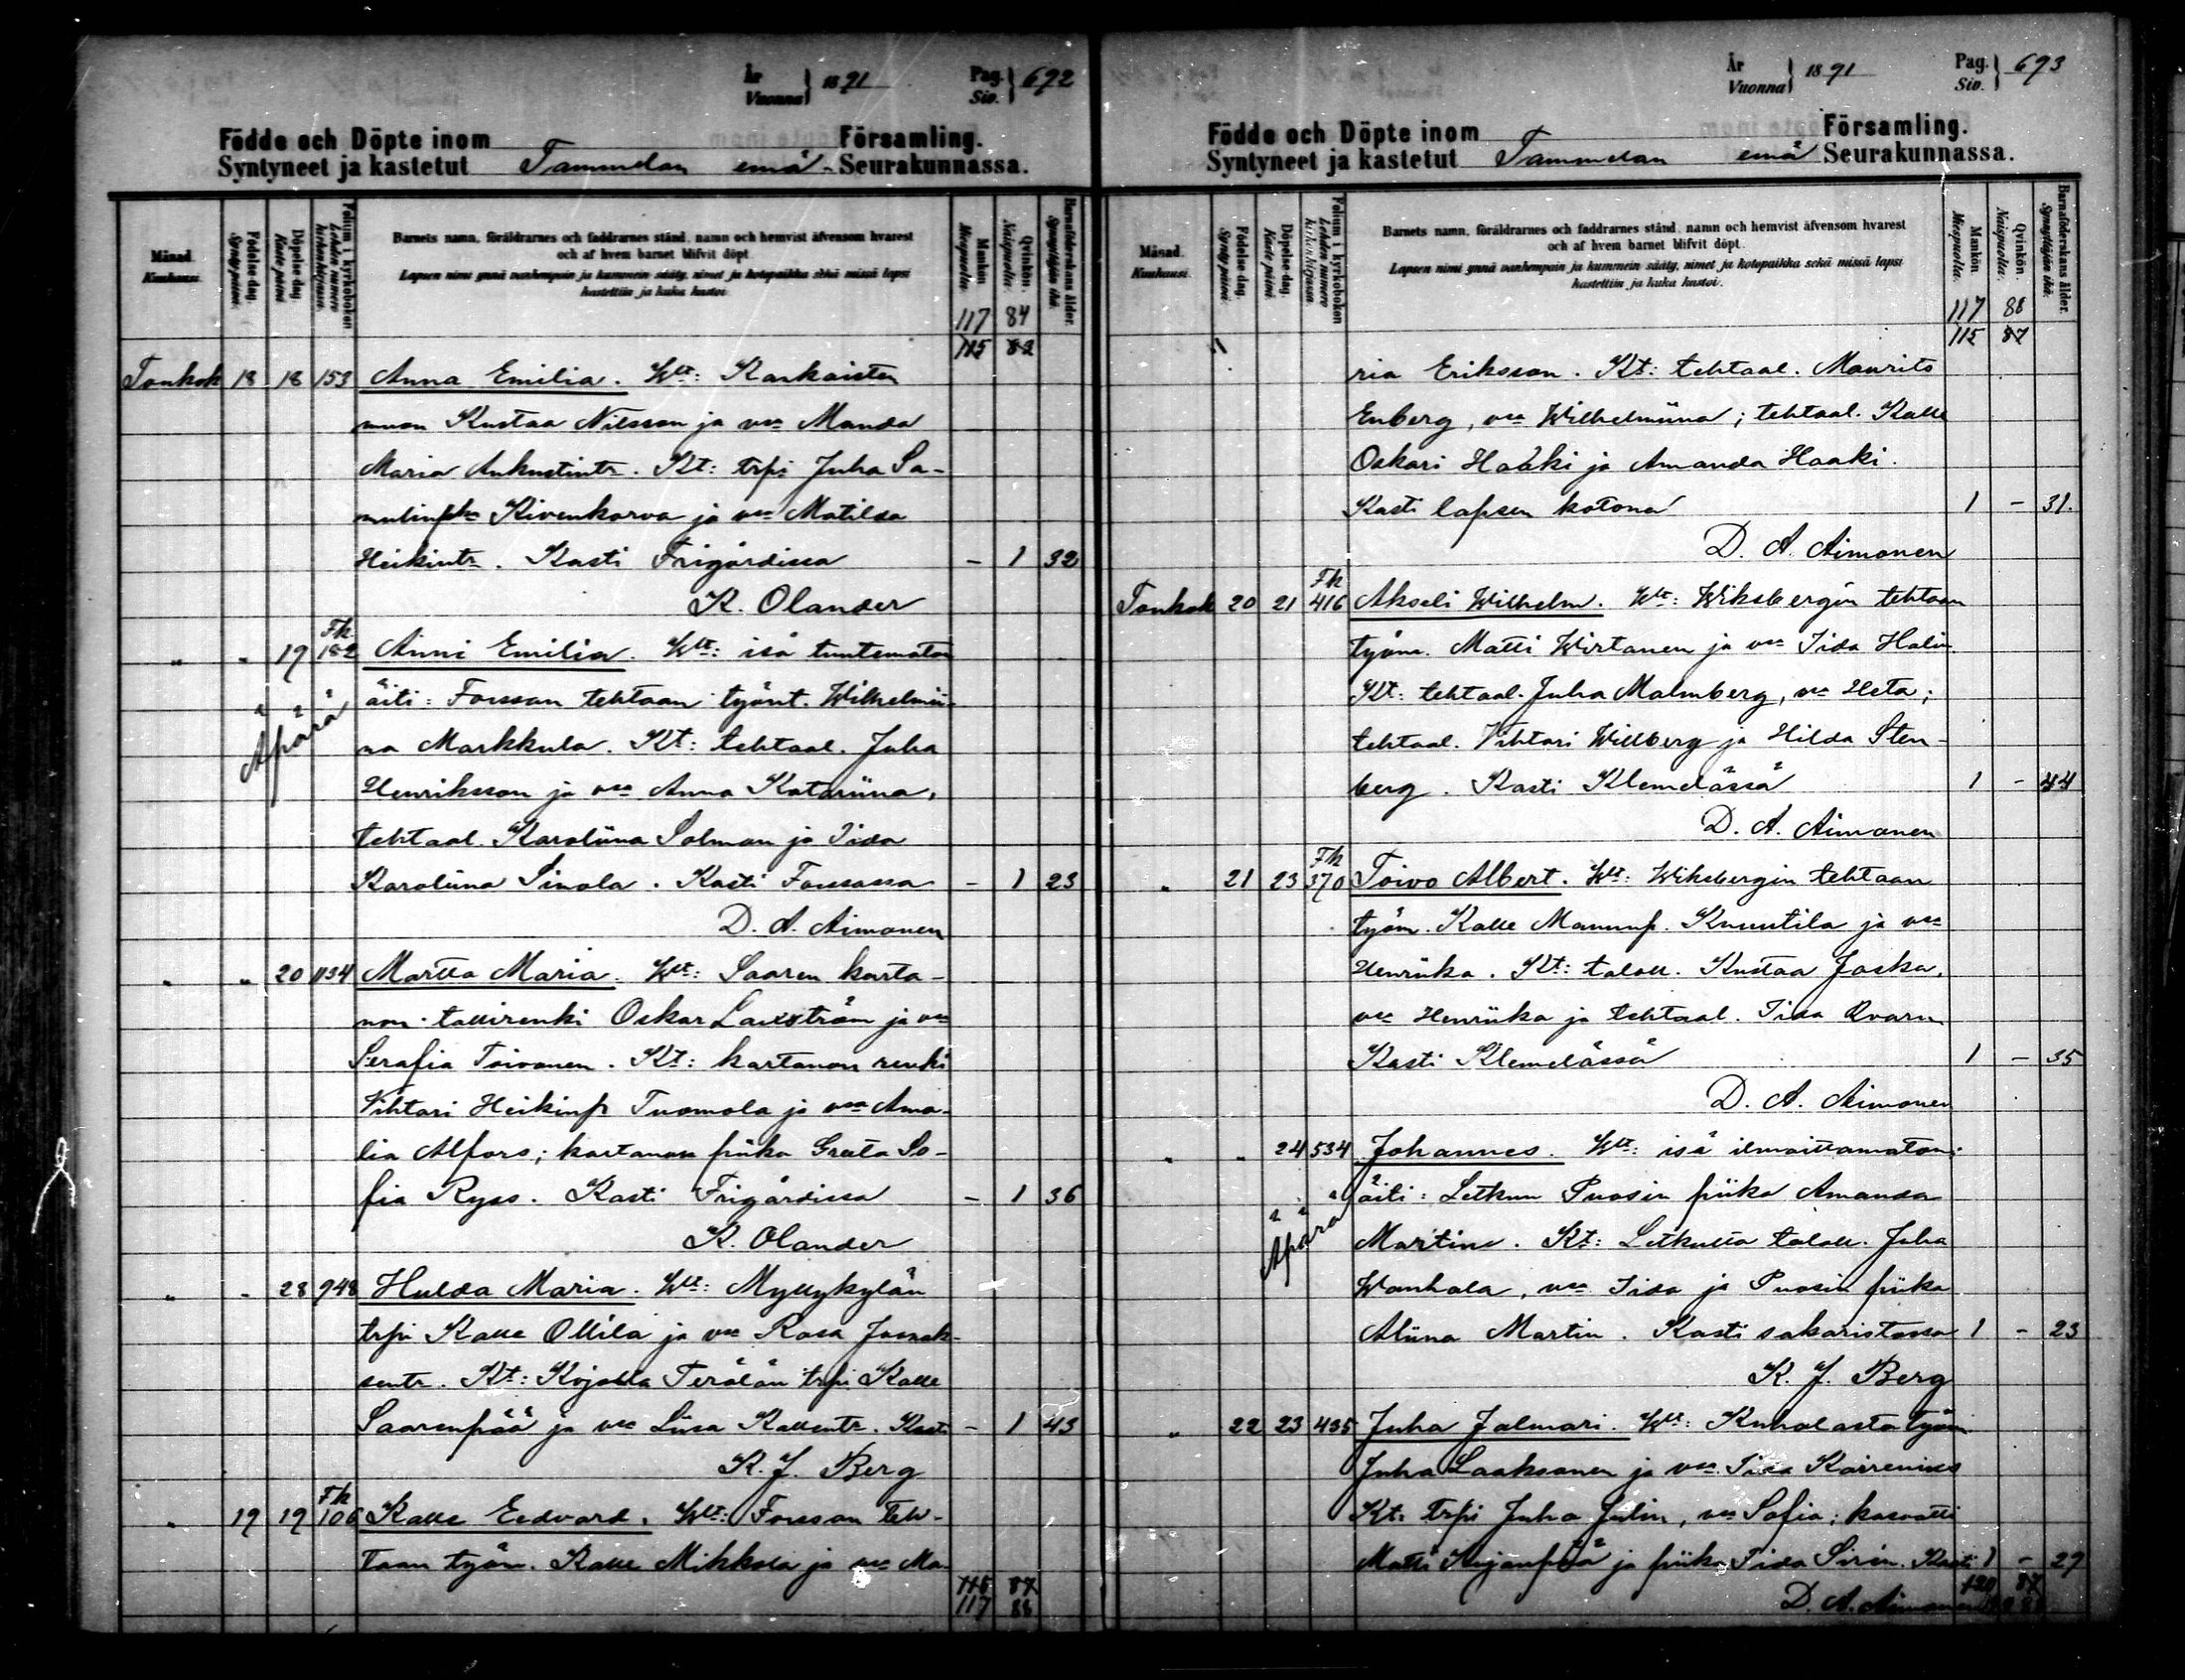 År Vuonna } 1891 Pag. Siv. } 692
Födde och Döpte inom Församling.
Syntyneet ja kastetut Tammelan emä-Seurakunnassa.
Månad. Kuukausi.
Födelse-dag. Syntypäivä.
Döpelse-dag. Kaste päivä.
Folium i kyrkoboken Lehden numero kirkonkirjassa.
Barnets namn, föräldrarnes och faddrarnes stånd, namn och hemvist äfvensom hvarest
och af hvem barnet blifvit döpt.
Lapsen nimi ynnä vanhempain ja kummein sääty, nimet ja kotopaikka sekä missä lapsi
kastettiin ja kuka kastoi.
Mankön. Miespuolta.
Qvinkön. Naispuolta.
Barnaföderskans ålder. Synnyttäjän ikä.
117 84
115 82
Toukok 18 18 153 Anna Emilia. Wlt: Karkaisten
muon Kustaa Nilsson ja vso Manda
Maria Aukustintr. Kt: trpi Juha Sa-
mulinpka Kivenkorva ja vso Matilda
Heikintr. Kasti Frigårdissa - 1 32
K. Olander
" " 19 Fk 182 Anni Emilia. Wlt: isä tuntematon
Äpärä äiti: Forssan tehtaan työnt. Wilhelmii-
na Markkula. Kt: tehtaal. Juha
Henriksson ja vso Anna Katariina,
tehtaal. Karoliina Salman ja Iida
Karoliina Sinola. Kasti Forssassa - 1 23
D. A. Aimonen
" " 20 1134 Martta Maria. Wlt: Saaren karta-
non tallirenki Oskar Laxström ja vso
Serafia Toivonen. Kt: kartanon renki
Vihtari Heikinp Tuomola ja vso Ama-
lia Alfors; kartanon piika Greta So-
fia Ryss. Kasti Frigårdissa - 1 36
K. Olander
" " 28 948 Hulda Maria. Wlt: Myllykylän
trpi Kalle Ollila ja vso Rosa Joosek-
sentr. Kt: Kojolla Terälän trpi Kalle
Saarenpää ja vso Liisa Kallentr. Kasti - 1 43
K. J. Berg
" 19 19 Fk 106 Kalle Eedvard. Wlt: Forssan Teh-
taan työm. Kalle Mikkola ja vso Ma-
116 87
117 88
År Vuonna } 1891 Pag. Siv. } 693
Födde och Döpte inom Församling.
Syntyneet ja kastetut Tammelan emä Seurakunnassa.
Månad. Kuukausi.
Födelse-dag. Syntypäivä.
Döpelse-dag. Kaste päivä.
Folium i kyrkoboken Lehden numero kirkonkirjassa.
Barnets namn, föräldrarnes och faddrarnes stånd, namn och hemvist äfvensom hvarest
och af hvem barnet blifvit döpt.
Lapsen nimi ynnä vanhempain ja kummein sääty, nimet ja kotopaikka sekä missä lapsi
kastettiin ja kuka kastoi.
Mankön. Miespuolta.
Qvinkön. Naispuolta.
Barnaföderskans ålder. Synnyttäjän ikä.
117 88
115 87
ria Eriksson. Kt: tehtaal. Maurits
Enberg, vso Wilhelmiina; tehtaal. Kalle
Oskari Haaki ja Amanda Haaki.
Kasti lapsen kotona 1 - 31.
D. A. Aimonen
Toukok 20 21 Fk 416 Akseli Wilhelm. Wlt: Wiksbergin tehtaan
työm. Matti Wirtanen ja vso Iida Halin.
Kt: tehtaal. Juha Malmberg, vso Heta;
tehtaal. Vihtari Willberg ja Hilda Sten-
berg. Kasti Klemelässä 1 - 44
D. A. Aimonen
" 21 23 Fk 370 Toivo Albert. Wlt: Wiksbergin tehtaan
työm. Kalle Manunp. Knuutila ja vso
Henriika. Kt: taloll. Kustaa Jaska,
vso Henriika ja tehtaal. Iida Qvarn
Kasti Klemelässä 1 - 35
D. A. Aimonen
" " 24 534 Johannes. Wlt: isä ilmoittamaton;
Äpärä äiti: Letkun Puosin piika Amanda
Martin. Kt: Letkulta taloll. Juha
Wanhala, vso Iida ja Puosin piika
Aliina Martin. Kasti sakaristossa 1 - 23
K. J. Berg
" 22 23 435 Juha Jalmari. Wlt: Kuhalasta työm
Juha Laaksonen ja vso Iida
Kt: trpi Juha Julin, vso Sofia; kasvatti
Matti Kujanpää ja piika Iida Sirén. Kasti 1 - 27
120 87
D. A. Aimonen